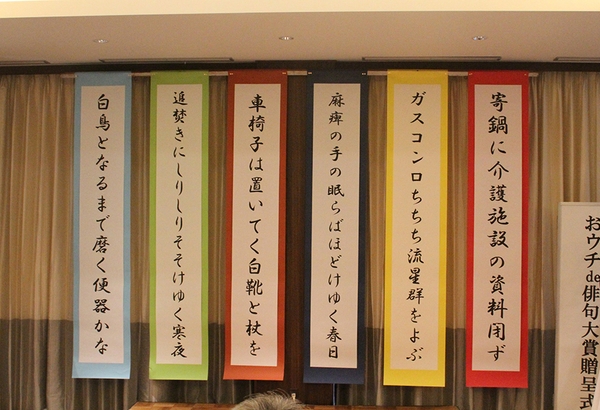 寄鍋に介護施設の資料閉ず
ガスコンロちちち流星群をよぶ
麻痺の手の眠らばほどけゆく春日
車椅子は置いてく白靴と杖を
追焚きにしりしりそそけゆく寒夜
白鳥となるまで磨く便器かな
おウチde俳句大賞贈呈式